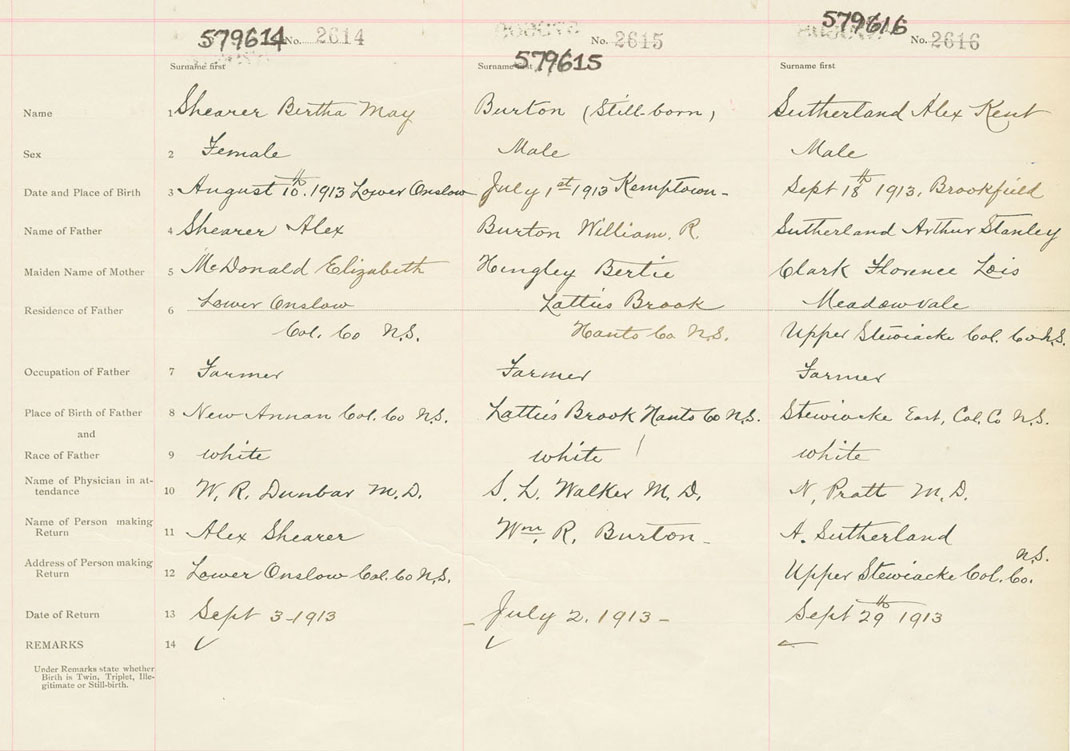 579614 No. 2614 No. 2615 579616 No. 2616
Surname first Surname first 579615 Surname first
Name 1 Shearer Bertha May Burton (Still-born) Sutherland Alex Kent
Sex 2 Female Male Male
Date and Place of Birth 3 August 10th. 1913 Lower Onslow July 1st 1913 Kemptown- Sept 18th 1913, Brookfield
Name of Father 4 Shearer Alex Burton William. R. Sutherland Arthur Stanley
Maiden Name of Mother 5 McDonald Elizabeth Hingley Bertie Clark Florence Lois
Residence of Father 6 Lower Onslow Latties Brook Meadowvale
Col. Co N.S. Hants Co N.S. Upper Stewiacke Col. Co N.S.
Occupation of Father 7 Farmer Farmer Farmer
Place of Birth of Father 8 New Annan Col. Co N.S. Latties Brook Hants Co N.S. Stewiacke East, Col. Co N.S.
and
Race of Father 9 white white white
Name of Physician in at-
tendance 10 W. R. Dunbar M.D. S. L. Walker M.D. N. Pratt M.D.
Name of Person making
Return 11 Alex Shearer Wm. R. Burton- A. Sutherland
Address of Person making
Return 12 Lower Onslow Col. Co N.S. Upper Stewiacke Col. Co. N.S.
Date of Return 13 Sept 3-1913 - July 2. 1913 - Sept 29th 1913
REMARKS 14 ✓ ✓ ✓
Under Remarks state whether
Birth is Twin, Triplet, Ille-
gitimate or Still-birth.